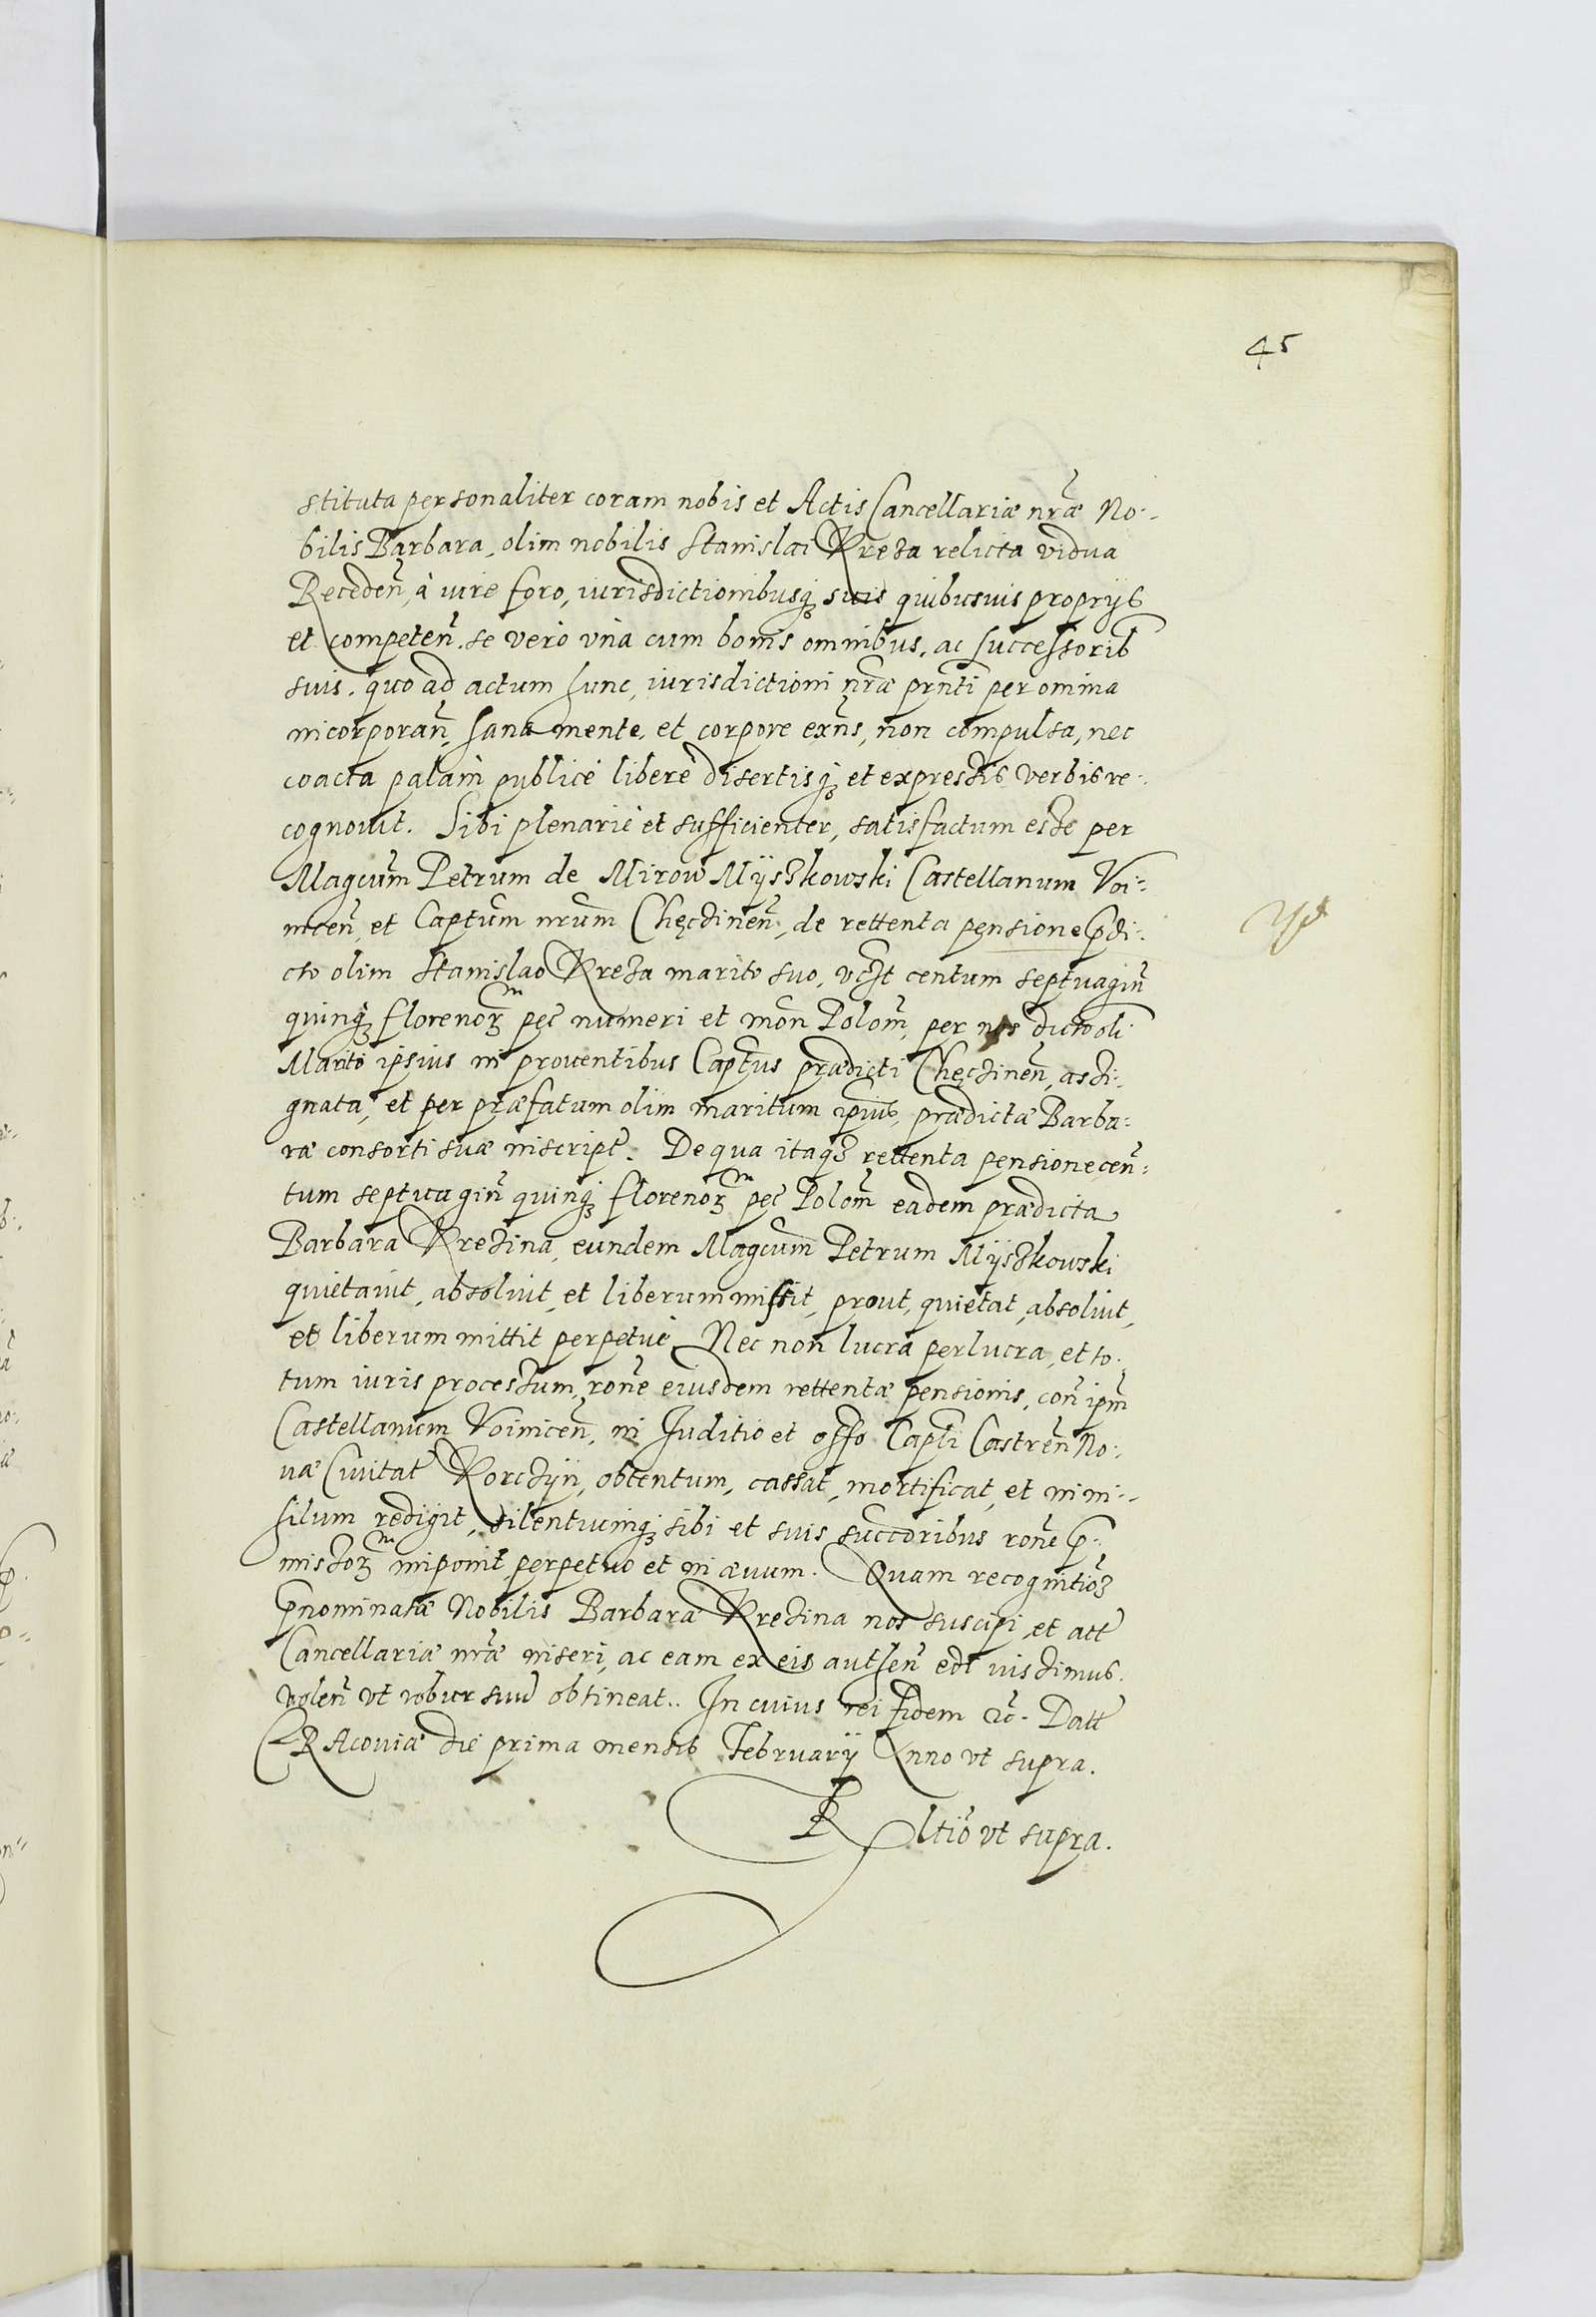 45
stituta personaliter coram nobis et Actis Cancellariæ nr̃æ No-
bilis Barbara, olim nobilis Stanislai Kreza relicta vidua
Recedeñ, à iure foro, iurisdictionibusq₃ suis quibusuis proprijs
et competeñ. se vero vna cum bonis omnibus, ac successorib
suis, quo ad actum hunc, iurisdictioni nr̃æ prn̄ti per omnia
incorporañ, sana mente, et corpore exñs, non compulsa, nec
coacta palam publice libere disertisq₃ et expressis verbis re-
cognouit. Sibi plenarie et sufficienter, satisfactum esse per
Magcum̃ Petrum de Mirow Myszkowski Castellanum Voi-
niceñ, et Captum̃ nrum̃ Chęczineñ, de rettenta pensione p̃di-
cto olim Stanislao Kreza marito suo, vczt centum septuagiñ
quinq₃ florenorꝫ pec̃ numeri et mon̄ Poloñ, per nos dicto oli
Marito ipsius in prouentibus Captũs prædicti Chęczineñ, assi-
gnata, et per præfatum olim maritum ipsius, prædictæ Barba-
ræ consorti suæ inscript̃. De qua itaq₃ rettenta pensione ceñ-
tum septuagiñ quinq₃ florenorꝫ pec̃ Poloñ eadem prædicta
Barbara Krezina, eundem Magcum̃ Petrum Myszkowski
quietauit, absoluit, et liberum missit, prout, quietat, absoluit,
et liberum mittit perpetue. Nec non lucra perlucra, et to-
tum iuris processum, roñe eiusdem rettentæ pensionis, coñ ipm̃
Castellanum Voiniceñ, in Juditio et offo Capti Castreñ No-
uæ Ciuitat̃ Korczyn, obtentum, cassat, mortificat, et in ni-
hilum redigit, silentiumq₃ sibi et suis succoribus roñe p̃-
missorꝫ imponit perpetuo et in æuum. Quam recognitioꝫ
p̃nominatæ Nobilis Barbaræ Krezina nos suscipi, et act̃
Cancellariæ nr̃æ inseri, ac eam ex eis autheñ edi iussimus.
voleñ vt robur suũ obtineat. In cuius rei fidem ꝛc̃. Datt̃
CRAcouiæ die prima mensis February Anno vt supra.
Rltiõ vt supra.